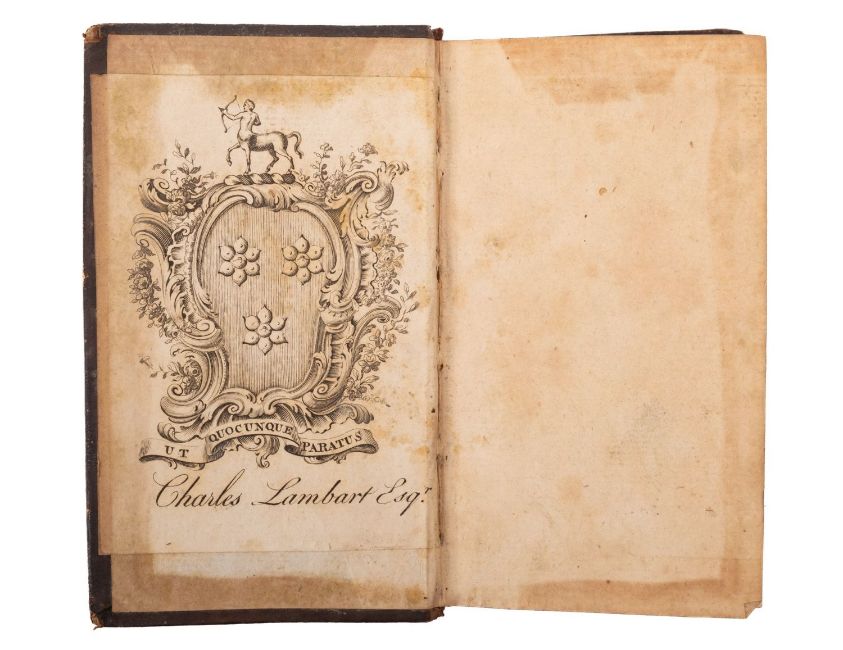 UT QUOCUNQUE PARATUS
Charles Lambart Esqr.